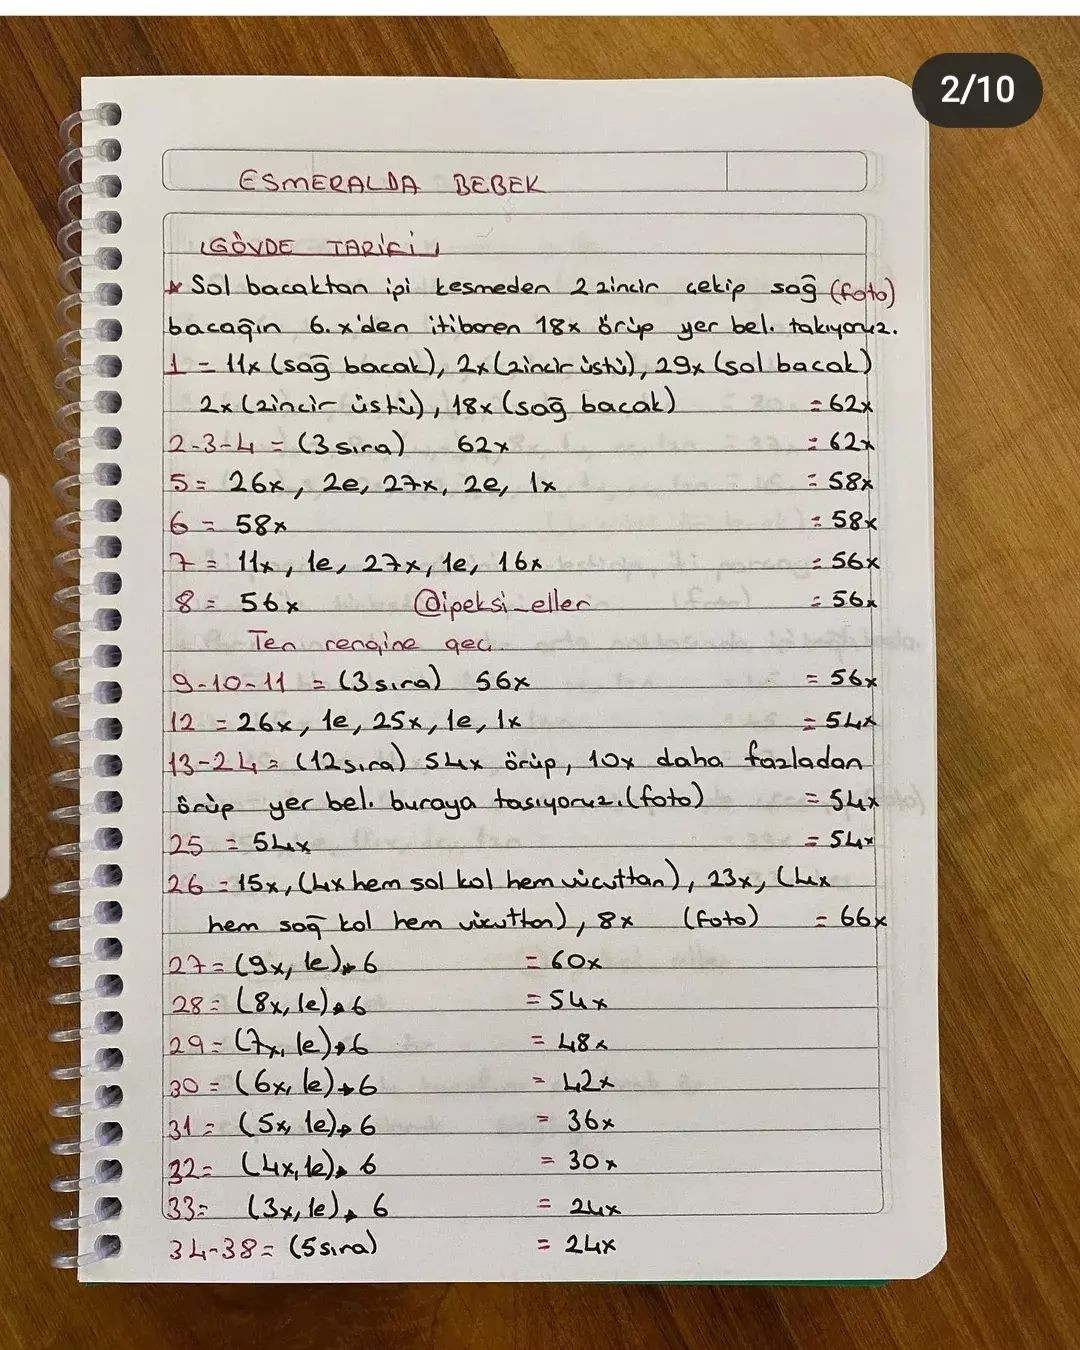 2/10
ESMERALDA BEBEK
GÖVDE TARİFİ
* Sol bacaktan ipi kesmeden 2 zincir çekip sağ (foto)
bacağın 6. x'den itibaren 18x örüp yer bel. takıyoruz.
1 = 11x (sağ bacak), 2x (zincir üstü), 29x (sol bacak)
2x (zincir üstü), 18x (sağ bacak) = 62x
2-3-4 = (3 sıra) 62x = 62x
5 = 26x, 2e, 27x, 2e, 1x = 58x
6 = 58x = 58x
7 = 11x, 1e, 27x, 1e, 16x = 56x
8 = 56x @ipeksi_eller = 56x
Ten rengine geç
9-10-11 = (3 sıra) 56x = 56x
12 = 26x, 1e, 25x, 1e, 1x = 54x
13-24 = (12 sıra) 54x örüp, 10x daha fazladan
örüp yer bel. buraya taşıyoruz. (foto) = 54x
25 = 54x = 54x
26 = 15x, (4x hem sol kol hem vücuttan), 23x, (4x
hem sağ kol hem vücuttan), 8x (foto) = 66x
27 = (9x, 1e)*6 = 60x
28 = (8x, 1e)*6 = 54x
29 = (7x, 1e)*6 = 48x
30 = (6x, 1e)*6 = 42x
31 = (5x, 1e)*6 = 36x
32 = (4x, 1e)*6 = 30x
33 = (3x, 1e)*6 = 24x
34-38 = (5 sıra) = 24x